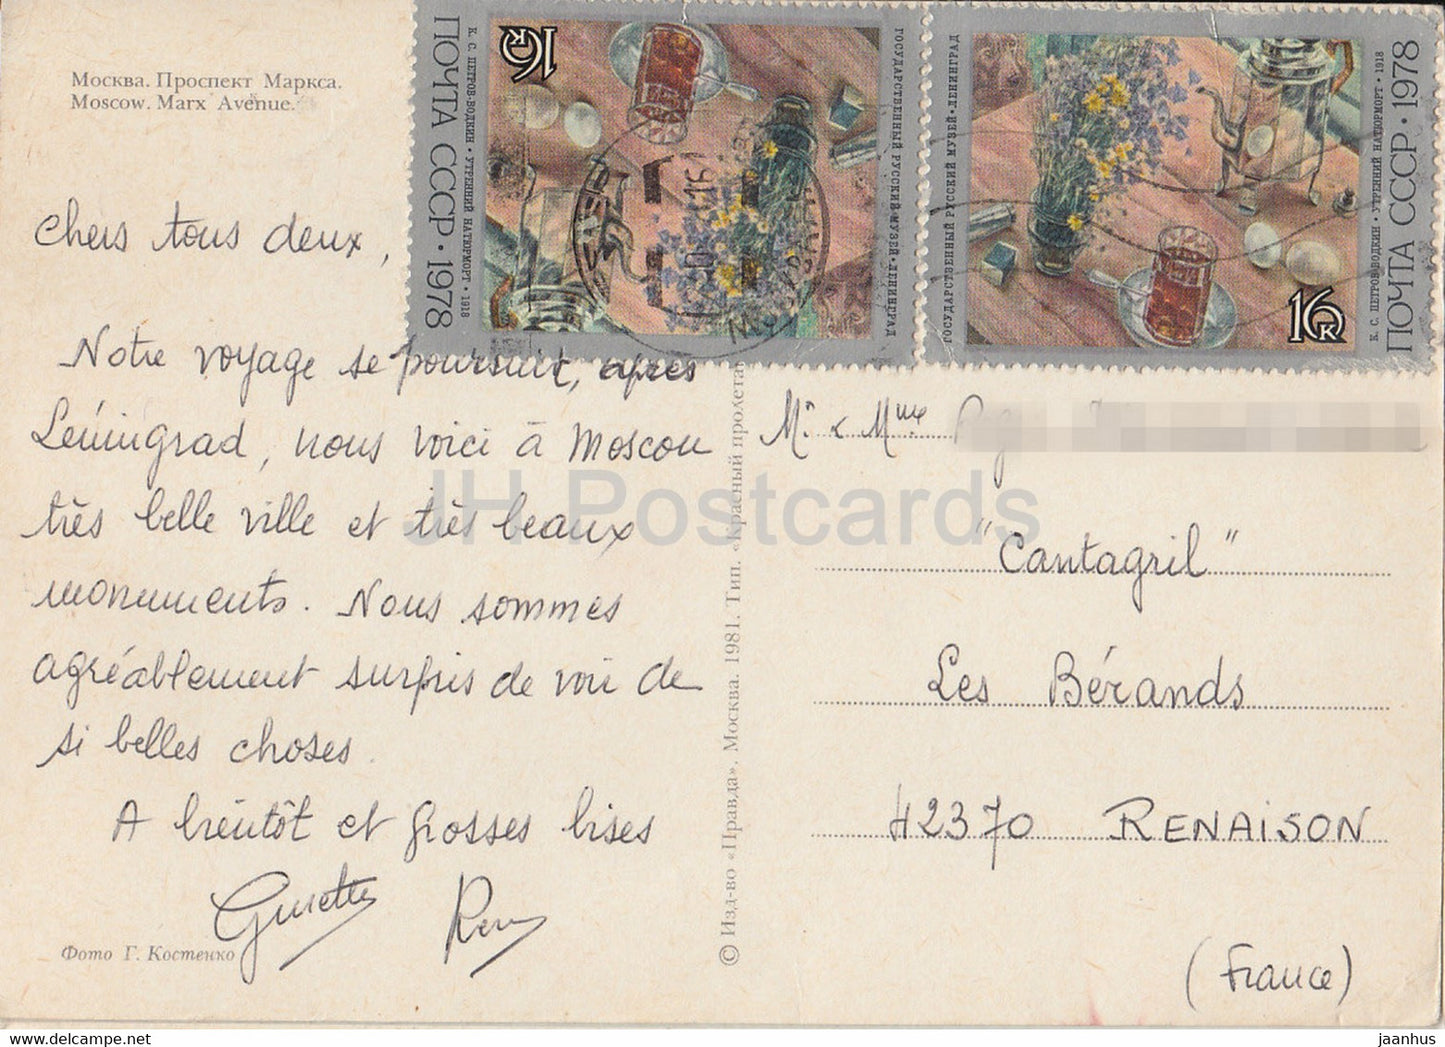 Москва. Проспект Маркса.
Moscow. Marx Avenue.
Chers tous deux,
Notre voyage se poursuit, après
Léningrad, nous voici à Moscou
très belle ville et très beaux
monuments. Nous sommes
agréablement surpris de voir de
si belles choses.
A bientôt et grosses bises
Ginette
Фото Г. Костенко
© Изд-во «Правда». Москва. 1981. Тип. «Красный пролета
16 К
ПОЧТА СССР • 1978
К. С. ПЕТРОВ-ВОДКИН • УТРЕННИЙ НАТЮРМОРТ • 1918
ГОСУДАРСТВЕННЫЙ РУССКИЙ МУЗЕЙ • ЛЕНИНГРАД
ГОСУДАРСТВЕННЫЙ РУССКИЙ МУЗЕЙ • ЛЕНИНГРАД
16 К
К. С. ПЕТРОВ-ВОДКИН • УТРЕННИЙ НАТЮРМОРТ • 1918
ПОЧТА СССР • 1978
Mr & Mme
"Cantagril"
Les Bérands
42370 RENAISON
(France)
JH Postcards
jaanhus